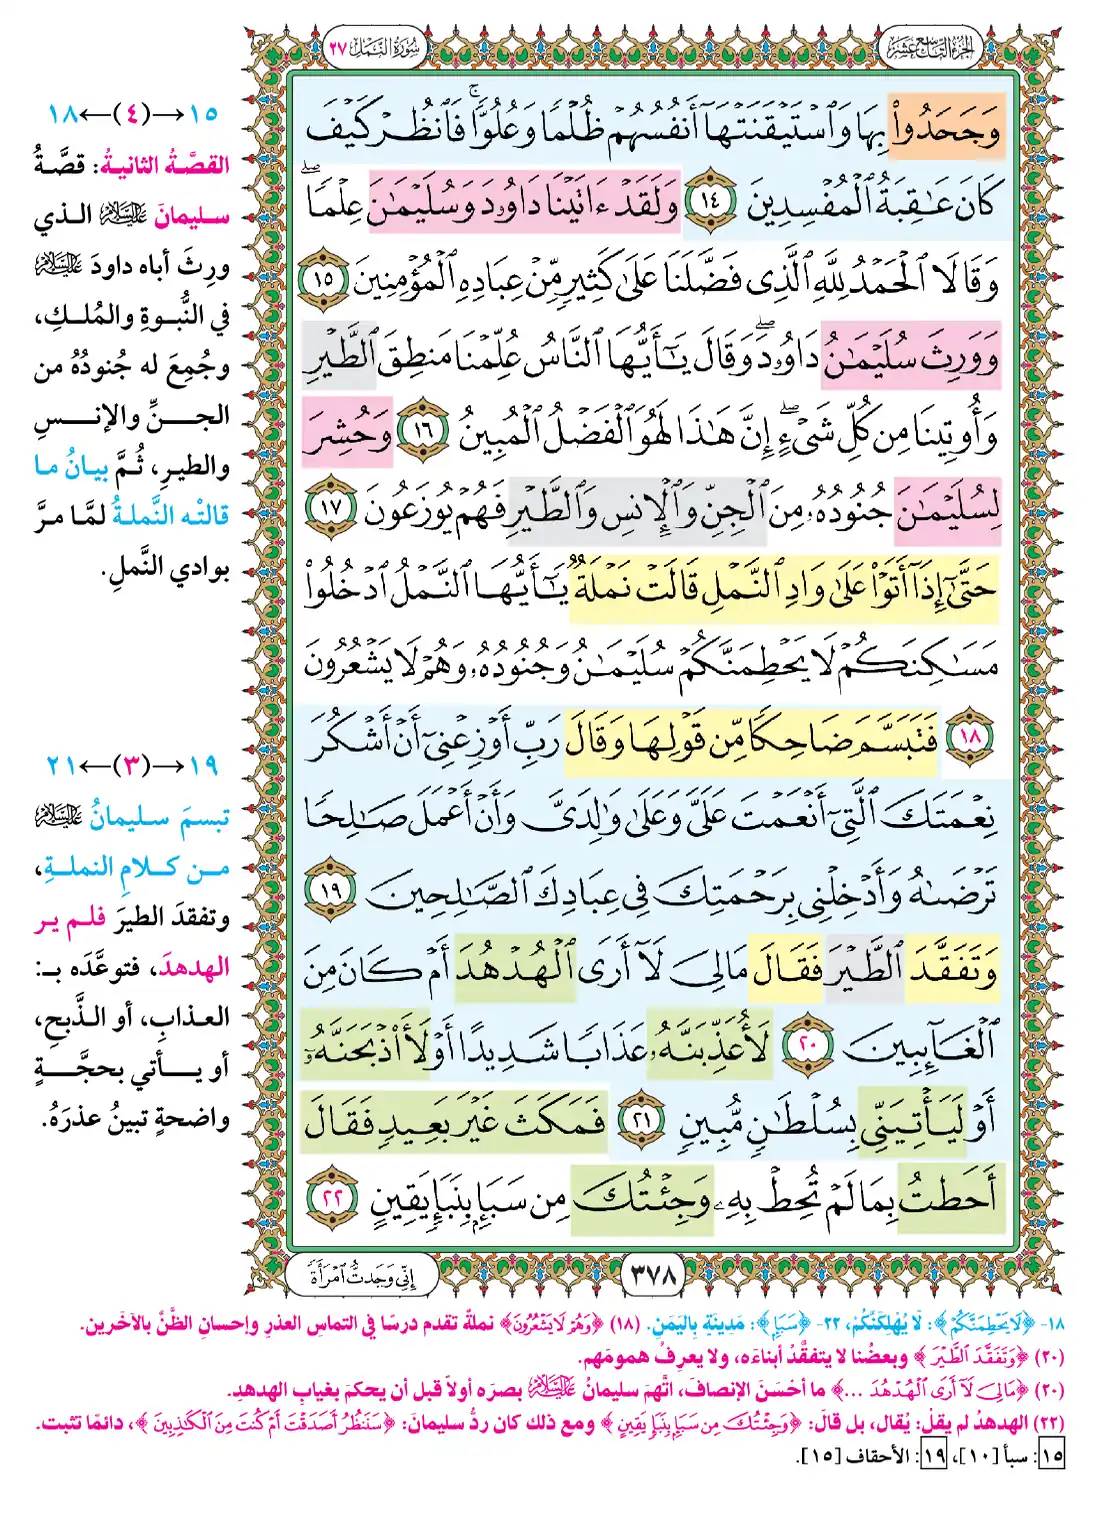 الجزء التاسع عشر
سورة النمل ٢٧
وَجَحَدُواْ بِهَا وَٱسۡتَيۡقَنَتۡهَآ أَنفُسُهُمۡ ظُلۡمٗا وَعُلُوّٗاۚ فَٱنظُرۡ كَيۡفَ
كَانَ عَٰقِبَةُ ٱلۡمُفۡسِدِينَ ١٤ وَلَقَدۡ ءَاتَيۡنَا دَاوُۥدَ وَسُلَيۡمَٰنَ عِلۡمٗاۖ
وَقَالَا ٱلۡحَمۡدُ لِلَّهِ ٱلَّذِي فَضَّلَنَا عَلَىٰ كَثِيرٖ مِّنۡ عِبَادِهِ ٱلۡمُؤۡمِنِينَ ١٥
وَوَرِثَ سُلَيۡمَٰنُ دَاوُۥدَۖ وَقَالَ يَٰٓأَيُّهَا ٱلنَّاسُ عُلِّمۡنَا مَنطِقَ ٱلطَّيۡرِ
وَأُوتِينَا مِن كُلِّ شَيۡءٍۖ إِنَّ هَٰذَا لَهُوَ ٱلۡفَضۡلُ ٱلۡمُبِينُ ١٦ وَحُشِرَ
لِسُلَيۡمَٰنَ جُنُودُهُۥ مِنَ ٱلۡجِنِّ وَٱلۡإِنسِ وَٱلطَّيۡرِ فَهُمۡ يُوزَعُونَ ١٧
حَتَّىٰٓ إِذَآ أَتَوۡاْ عَلَىٰ وَادِ ٱلنَّمۡلِ قَالَتۡ نَمۡلَةٞ يَٰٓأَيُّهَا ٱلنَّمۡلُ ٱدۡخُلُواْ
مَسَٰكِنَكُمۡ لَا يَحۡطِمَنَّكُمۡ سُلَيۡمَٰنُ وَجُنُودُهُۥ وَهُمۡ لَا يَشۡعُرُونَ
١٨ فَتَبَسَّمَ ضَاحِكٗا مِّن قَوۡلِهَا وَقَالَ رَبِّ أَوۡزِعۡنِيٓ أَنۡ أَشۡكُرَ
نِعۡمَتَكَ ٱلَّتِيٓ أَنۡعَمۡتَ عَلَيَّ وَعَلَىٰ وَٰلِدَيَّ وَأَنۡ أَعۡمَلَ صَٰلِحٗا
تَرۡضَىٰهُ وَأَدۡخِلۡنِي بِرَحۡمَتِكَ فِي عِبَادِكَ ٱلصَّٰلِحِينَ ١٩
وَتَفَقَّدَ ٱلطَّيۡرَ فَقَالَ مَالِيَ لَآ أَرَى ٱلۡهُدۡهُدَ أَمۡ كَانَ مِنَ
ٱلۡغَآئِبِينَ ٢٠ لَأُعَذِّبَنَّهُۥ عَذَابٗا شَدِيدًا أَوۡ لَأَاْذۡبَحَنَّهُۥٓ
أَوۡ لَيَأۡتِيَنِّي بِسُلۡطَٰنٖ مُّبِينٖ ٢١ فَمَكَثَ غَيۡرَ بَعِيدٖ فَقَالَ
أَحَطتُ بِمَا لَمۡ تُحِطۡ بِهِۦ وَجِئۡتُكَ مِن سَبَإِۭ بِنَبَإٖ يَقِينٍ ٢٢
٣٧٨
إِنِّي وَجَدتُّ ٱمۡرَأَةٗ
١٥→(٤)←١٨
القصَّةُ الثانيةُ: قصَّةُ
سليمانَ عليه السلام الذي
ورِثَ أباه داودَ عليه السلام
في النُّبوةِ والمُلكِ،
وجُمِعَ له جُنودُهُ من
الجنِّ والإنسِ
والطيرِ، ثُمَّ بيانُ ما
قالتْه النَّملةُ لمَّا مرَّ
بوادي النَّملِ.
١٩→(٣)←٢١
تبسمَ سليمانُ عليه السلام
من كلامِ النملةِ،
وتفقدَ الطيرَ فلم ير
الهدهدَ، فتوعَّده بـ:
العذابِ، أو الذَّبحِ،
أو يأتي بحجَّةٍ
واضحةٍ تبينُ عذرَهُ.
١٨- ﴿لَا يَحۡطِمَنَّكُمۡ﴾: لَا يُهْلِكَنَّكُمْ، ٢٢- ﴿سَبَإٍ﴾: مَدِينَةٍ بِاليَمَنِ. (١٨) ﴿وَهُمۡ لَا يَشۡعُرُونَ﴾ نملةٌ تقدم درسًا في التماس العذرِ وإحسانِ الظَّنِّ بالآخَرين.
(٢٠) ﴿وَتَفَقَّدَ ٱلطَّيۡرَ﴾ وبعضُنا لا يتفقَّدُ أبناءَه، ولا يعرِفُ همومَهم.
(٢٠) ﴿مَالِيَ لَآ أَرَى ٱلۡهُدۡهُدَ ...﴾ ما أحْسَنَ الإنصافَ، اتَّهمَ سليمانُ عليه السلام بصرَه أولاً قبل أن يحكمَ بغيابِ الهدهدِ.
(٢٢) الهدهدُ لم يقلْ: يُقال، بل قالَ: ﴿وَجِئۡتُكَ مِن سَبَإِۭ بِنَبَإٖ يَقِينٍ﴾ ومع ذلك كان ردُّ سليمانَ: ﴿سَنَنظُرُ أَصَدَقۡتَ أَمۡ كُنتَ مِنَ ٱلۡكَٰذِبِينَ﴾، دائمًا تثبت.
١٥: سبأ [١٠]، ١٩: الأحقاف [١٥].